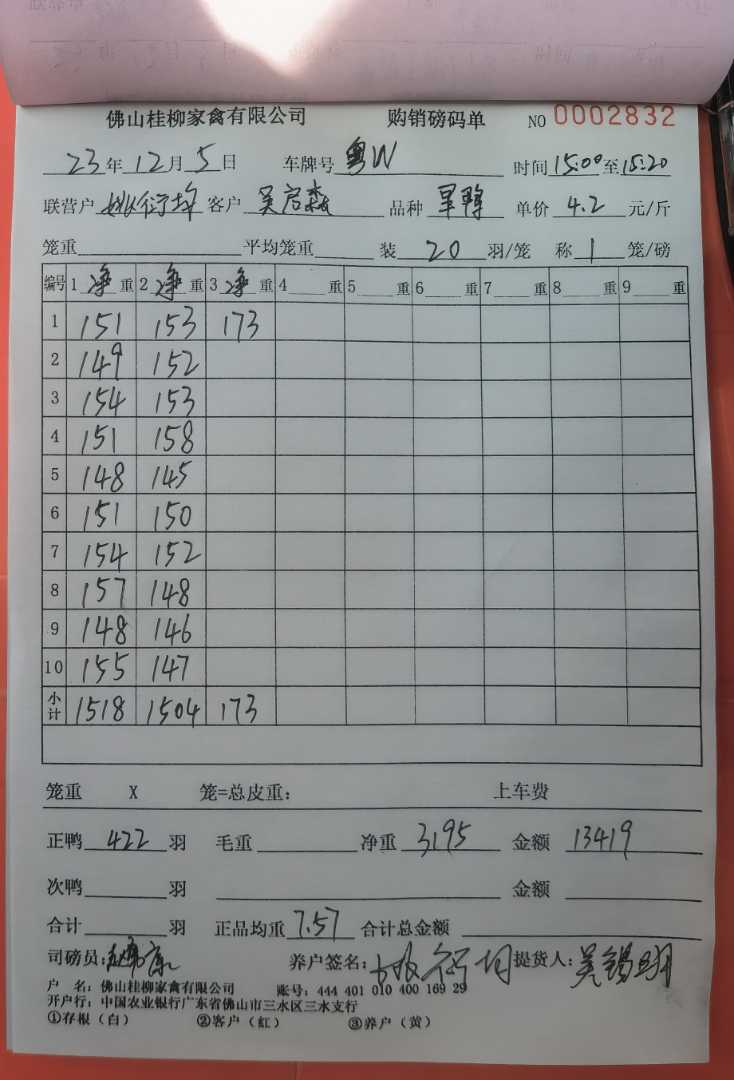 佛山桂柳家禽有限公司 购销磅码单 NO 0002832
23年12月5日 车牌号 粤W 时间 15:00至15:20
联营户 姚衍均 客户 吴启森 品种 单价 4.2 元/斤
笼重 平均笼重 装 20 羽/笼 称 1 笼/磅
编号 1 净 重 2 净 重 3 净 重 4 重 5 重 6 重 7 重 8 重 9 重
1 151 153 173
2 149 152
3 154 153
4 151 158
5 148 145
6 151 150
7 154 152
8 157 148
9 148 146
10 155 147
小计 1518 1504 173
笼重 X 笼=总皮重: 上车费
正鸭 422 羽 毛重 净重 3195 金额 13419
次鸭 羽 金额
合计 羽 正品均重 7.57 合计总金额
司磅员: 养户签名: 姚衍均 提货人: 吴锡翔
户 名: 佛山桂柳家禽有限公司 账号: 444 401 010 400 169 29
开户行: 中国农业银行广东省佛山市三水区三水支行
①存根（白） ②客户（红） ③养户（黄）